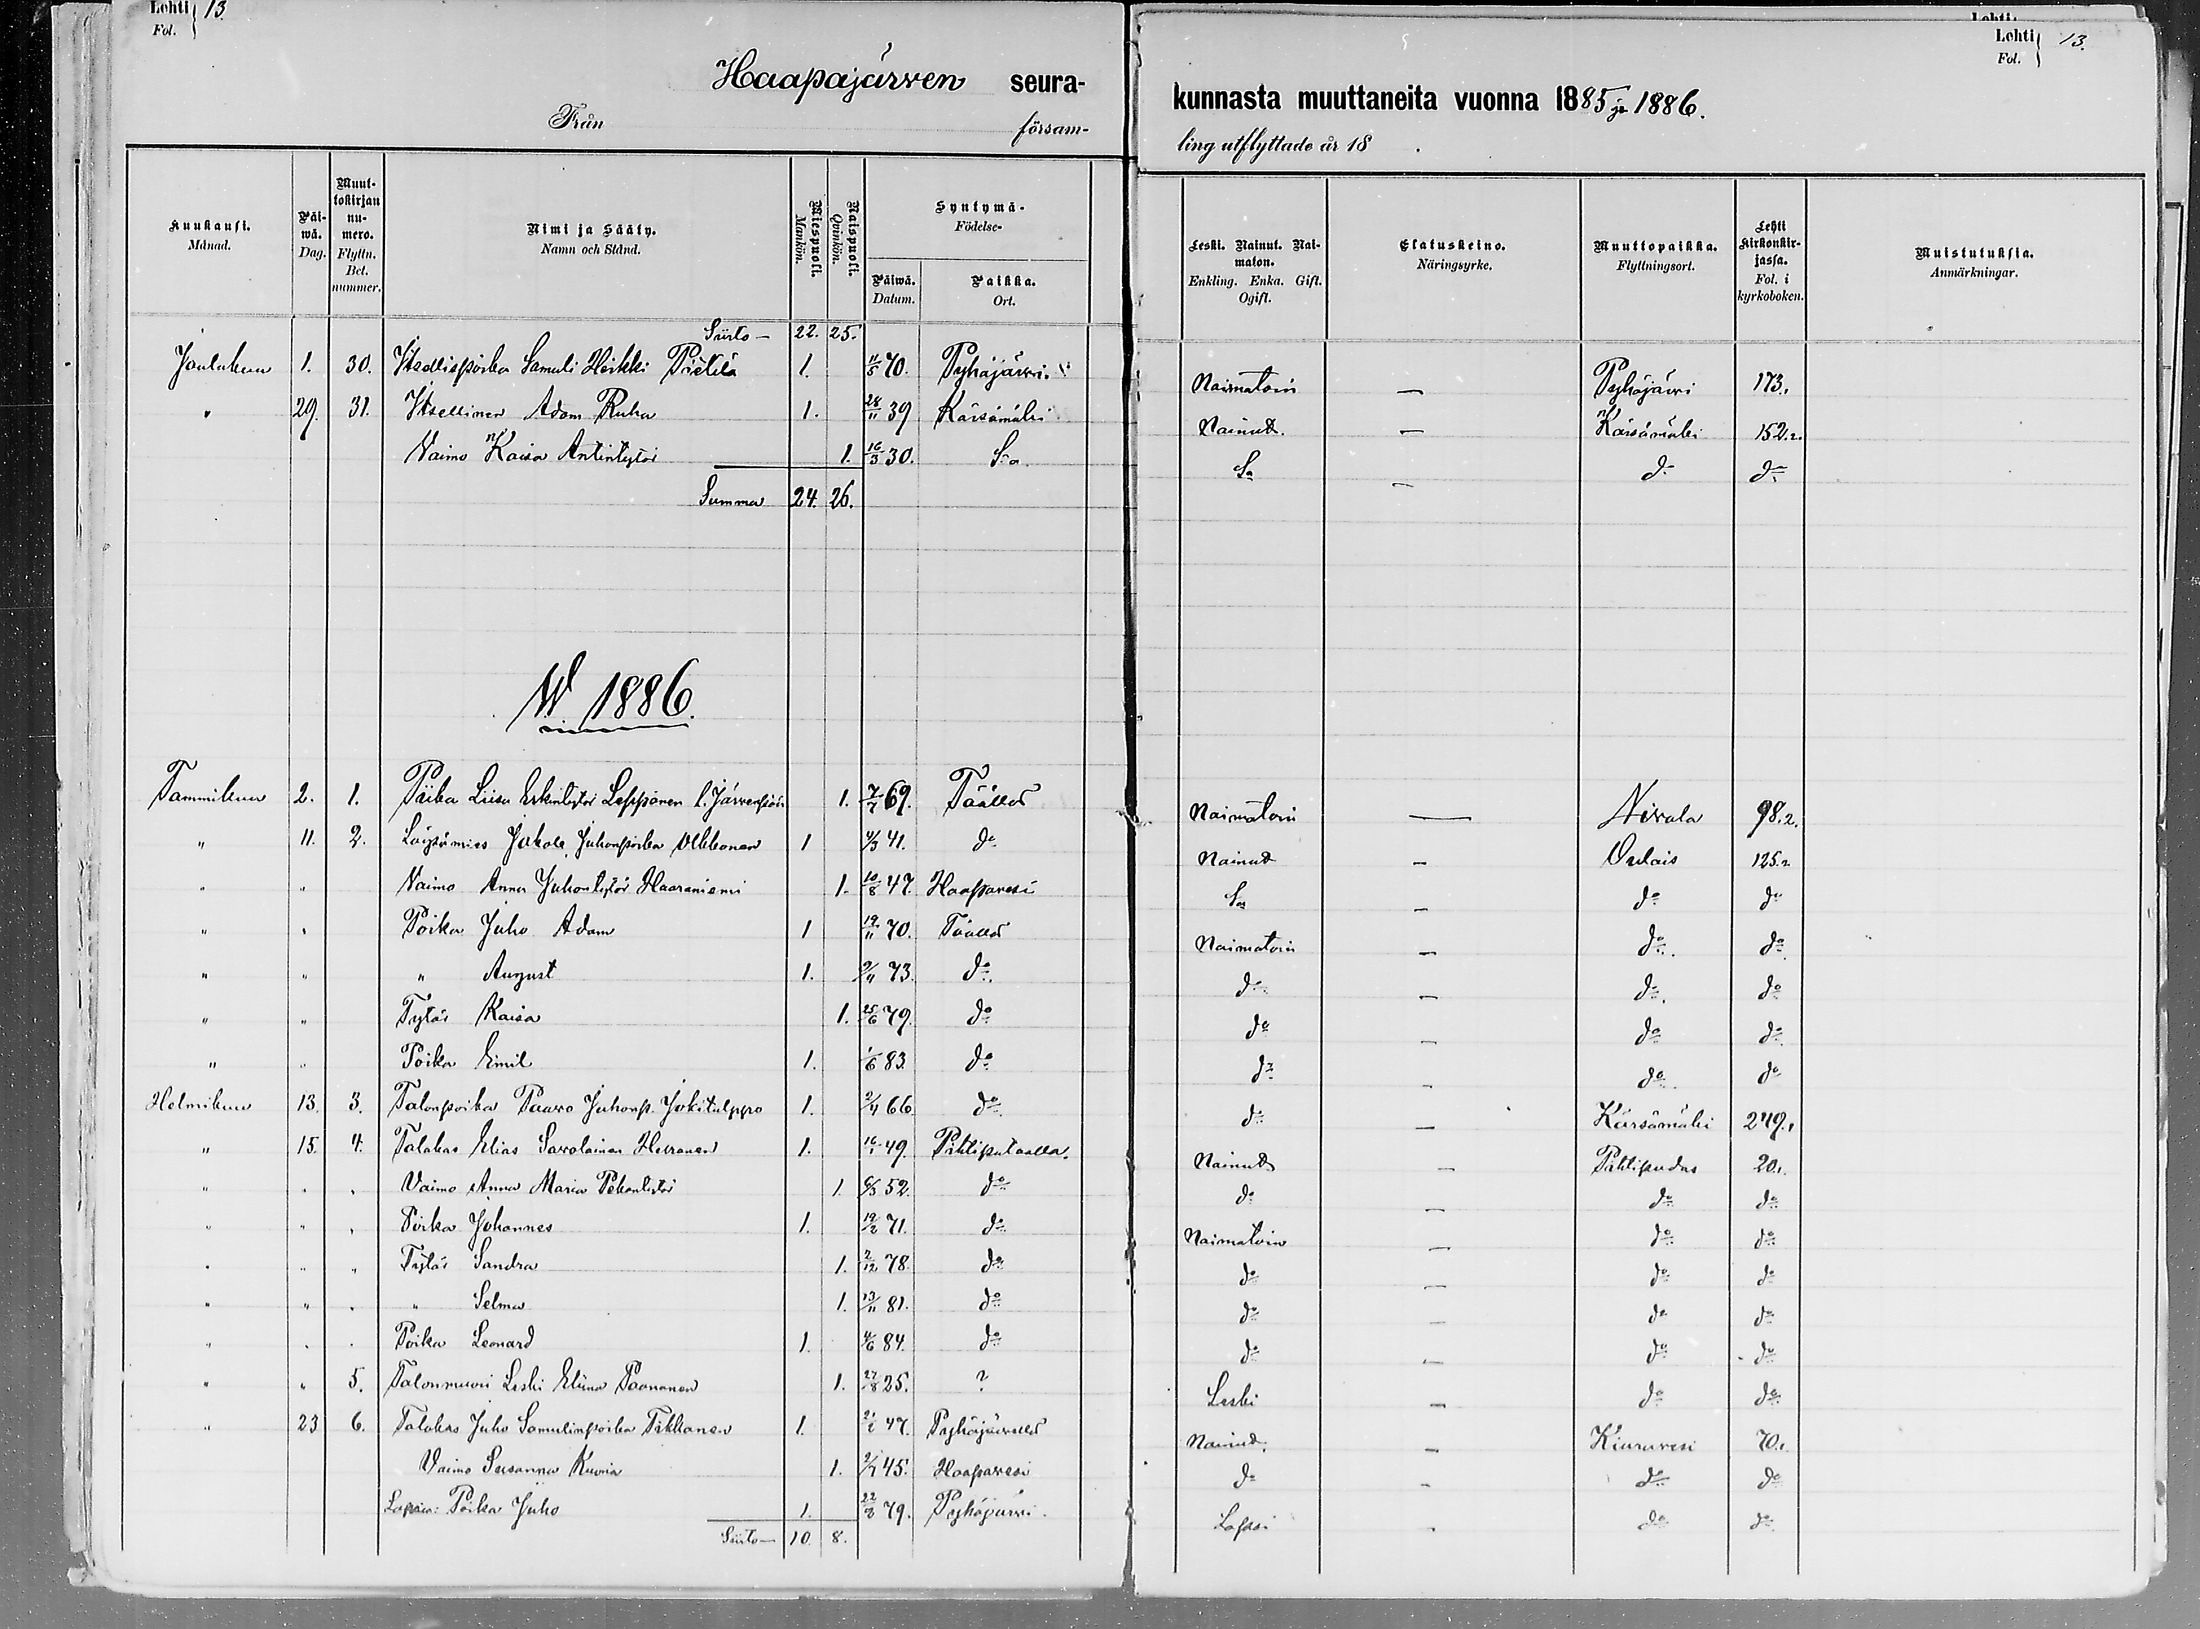 Lehti 13.
Fol.
Haapajärven seura-
Från försam-
Kuukausi. Månad. Päi-wä. Dag. Muut-tokirjan nu-mero. Flyttn. Bet. nummer. Nimi ja Sääty. Namn och Stånd. Miespuoli. Mankön. Naispuoli. Qvinkön. Syntymä- Födelse- Päiwä. Datum. Paikka. Ort.
Siirto — 22. 25.
Joulukuu 1. 30. Itsellispoika Samuli Heikki Pietilä 1. 11/5 70. Pyhäjärvi.
" 29. 31. Itsellinen Adam Ruha 1. 28/11 39 Kärsämäki
Vaimo Kaisa Antintytär 1. 16/3 30. S:a
Summa 24. 26.
W 1886.
Tammikuu 2. 1. Piika Liisa Erkintytär Leppänen l. Järvenpää 1. 7/7 69. Täällä
" 11. 2. Löysämies Jakob Juhonpoika Ulkkonen 1 4/3 41. do
" " Vaimo Anna Juhontytär Haaraniemi 1. 10/8 47. Haapavesi
" " Poika Juho Adam 1 19/11 70. Täällä
" " " August 1. 2/11 73. do
" " Tytär Kaisa 1. 25/6 79. do
" " Poika Emil 1. 1/6 83. do
Helmikuu 13. 3. Talonpoika Paavo Juhonp. Jokitulppo 1. 2/4 66. do
" 15. 4. Talokas Elias Savolainen Hiiranen 1. 16/1 49. Pihtiputaalla.
" " " Vaimo Anna Maria Pekantytär 1. 6/3 52. do
" " " Poika Johannes 1. 19/2 71. do
" " " Tytär Sandra 1. 2/12 78. do
" " " " Selma 1. 13/11 81. do
" " " Poika Leonard 1. 4/6 84. do
" " 5. Talonmuori Leski Eliina Paananen 1. 27/8 25. ?
" 23 6. Talokas Juho Samulinpoika Tikkanen 1. 47. Pyhäjärvellä
Vaimo Susanna Kuona 1. 2/7 45. Haapavesi
Lapsia: Poika Juho 1. 79. Pyhäjärvi.
Siirto — 10. 8.
Lehti
Lehti 13.
Fol.
kunnasta muuttaneita vuonna 1885 ja 1886.
ling utflyttade år 18 .
Leski. Nainut. Nai-maton. Enkling. Enka. Gift. Ogift. Elatuskeino. Näringsyrke. Muuttopaikka. Flyttningsort. Lehti kirkonkir-jassa. Fol. i kyrkoboken. Muistutuksia. Anmärkningar.
Naimatoin — Pyhäjärvi 173.1
Nainut. — Kärsämäki 152.2.
Sa — do do
Naimatoin — Nivala 98.2.
Nainut — Oulais 125.2
Sa — do do
Naimatoin — do do
do — do do
do — do do
do — do do
do — Kärsämäki 249.1
Nainut — Pihtipudas 20.1.
do — do do
Naimatoin — do do
do — do do
do — do do
do — do do
Leski — do do
Nainut. — Kiuruvesi 70.1.
do — do do
Lapsi — do do